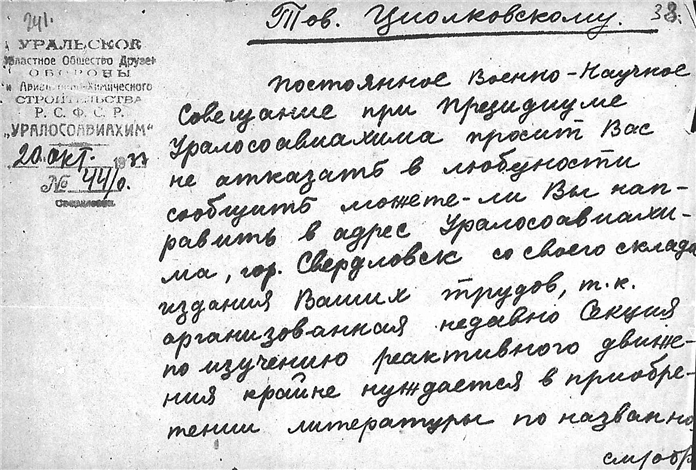 241.
38.
Тов. Циолковскому.
УРАЛЬСКОЕ
Областное Общество Друзей
ОБОРОНЫ
и Авиационно-Химического
СТРОИТЕЛЬСТВА
Р. С. Ф. С. Р.
„УРАЛОСОАВИАХИМ“
20 окт. 1933
№ 44/о.
Свердловск
Постоянное Военно-Научное
Совещание при Президиуме
Уралосоавиахима просит Вас
не отказать в любезности
сообщить можете-ли Вы нап-
равить в адрес Уралосоавиахи-
ма, гор. Свердловск со своего склада
издания Ваших трудов, т.к.
организованная недавно Секция
по изучению реактивного движе-
ния крайне нуждается в приобре-
тении литературы по названно
см/обр